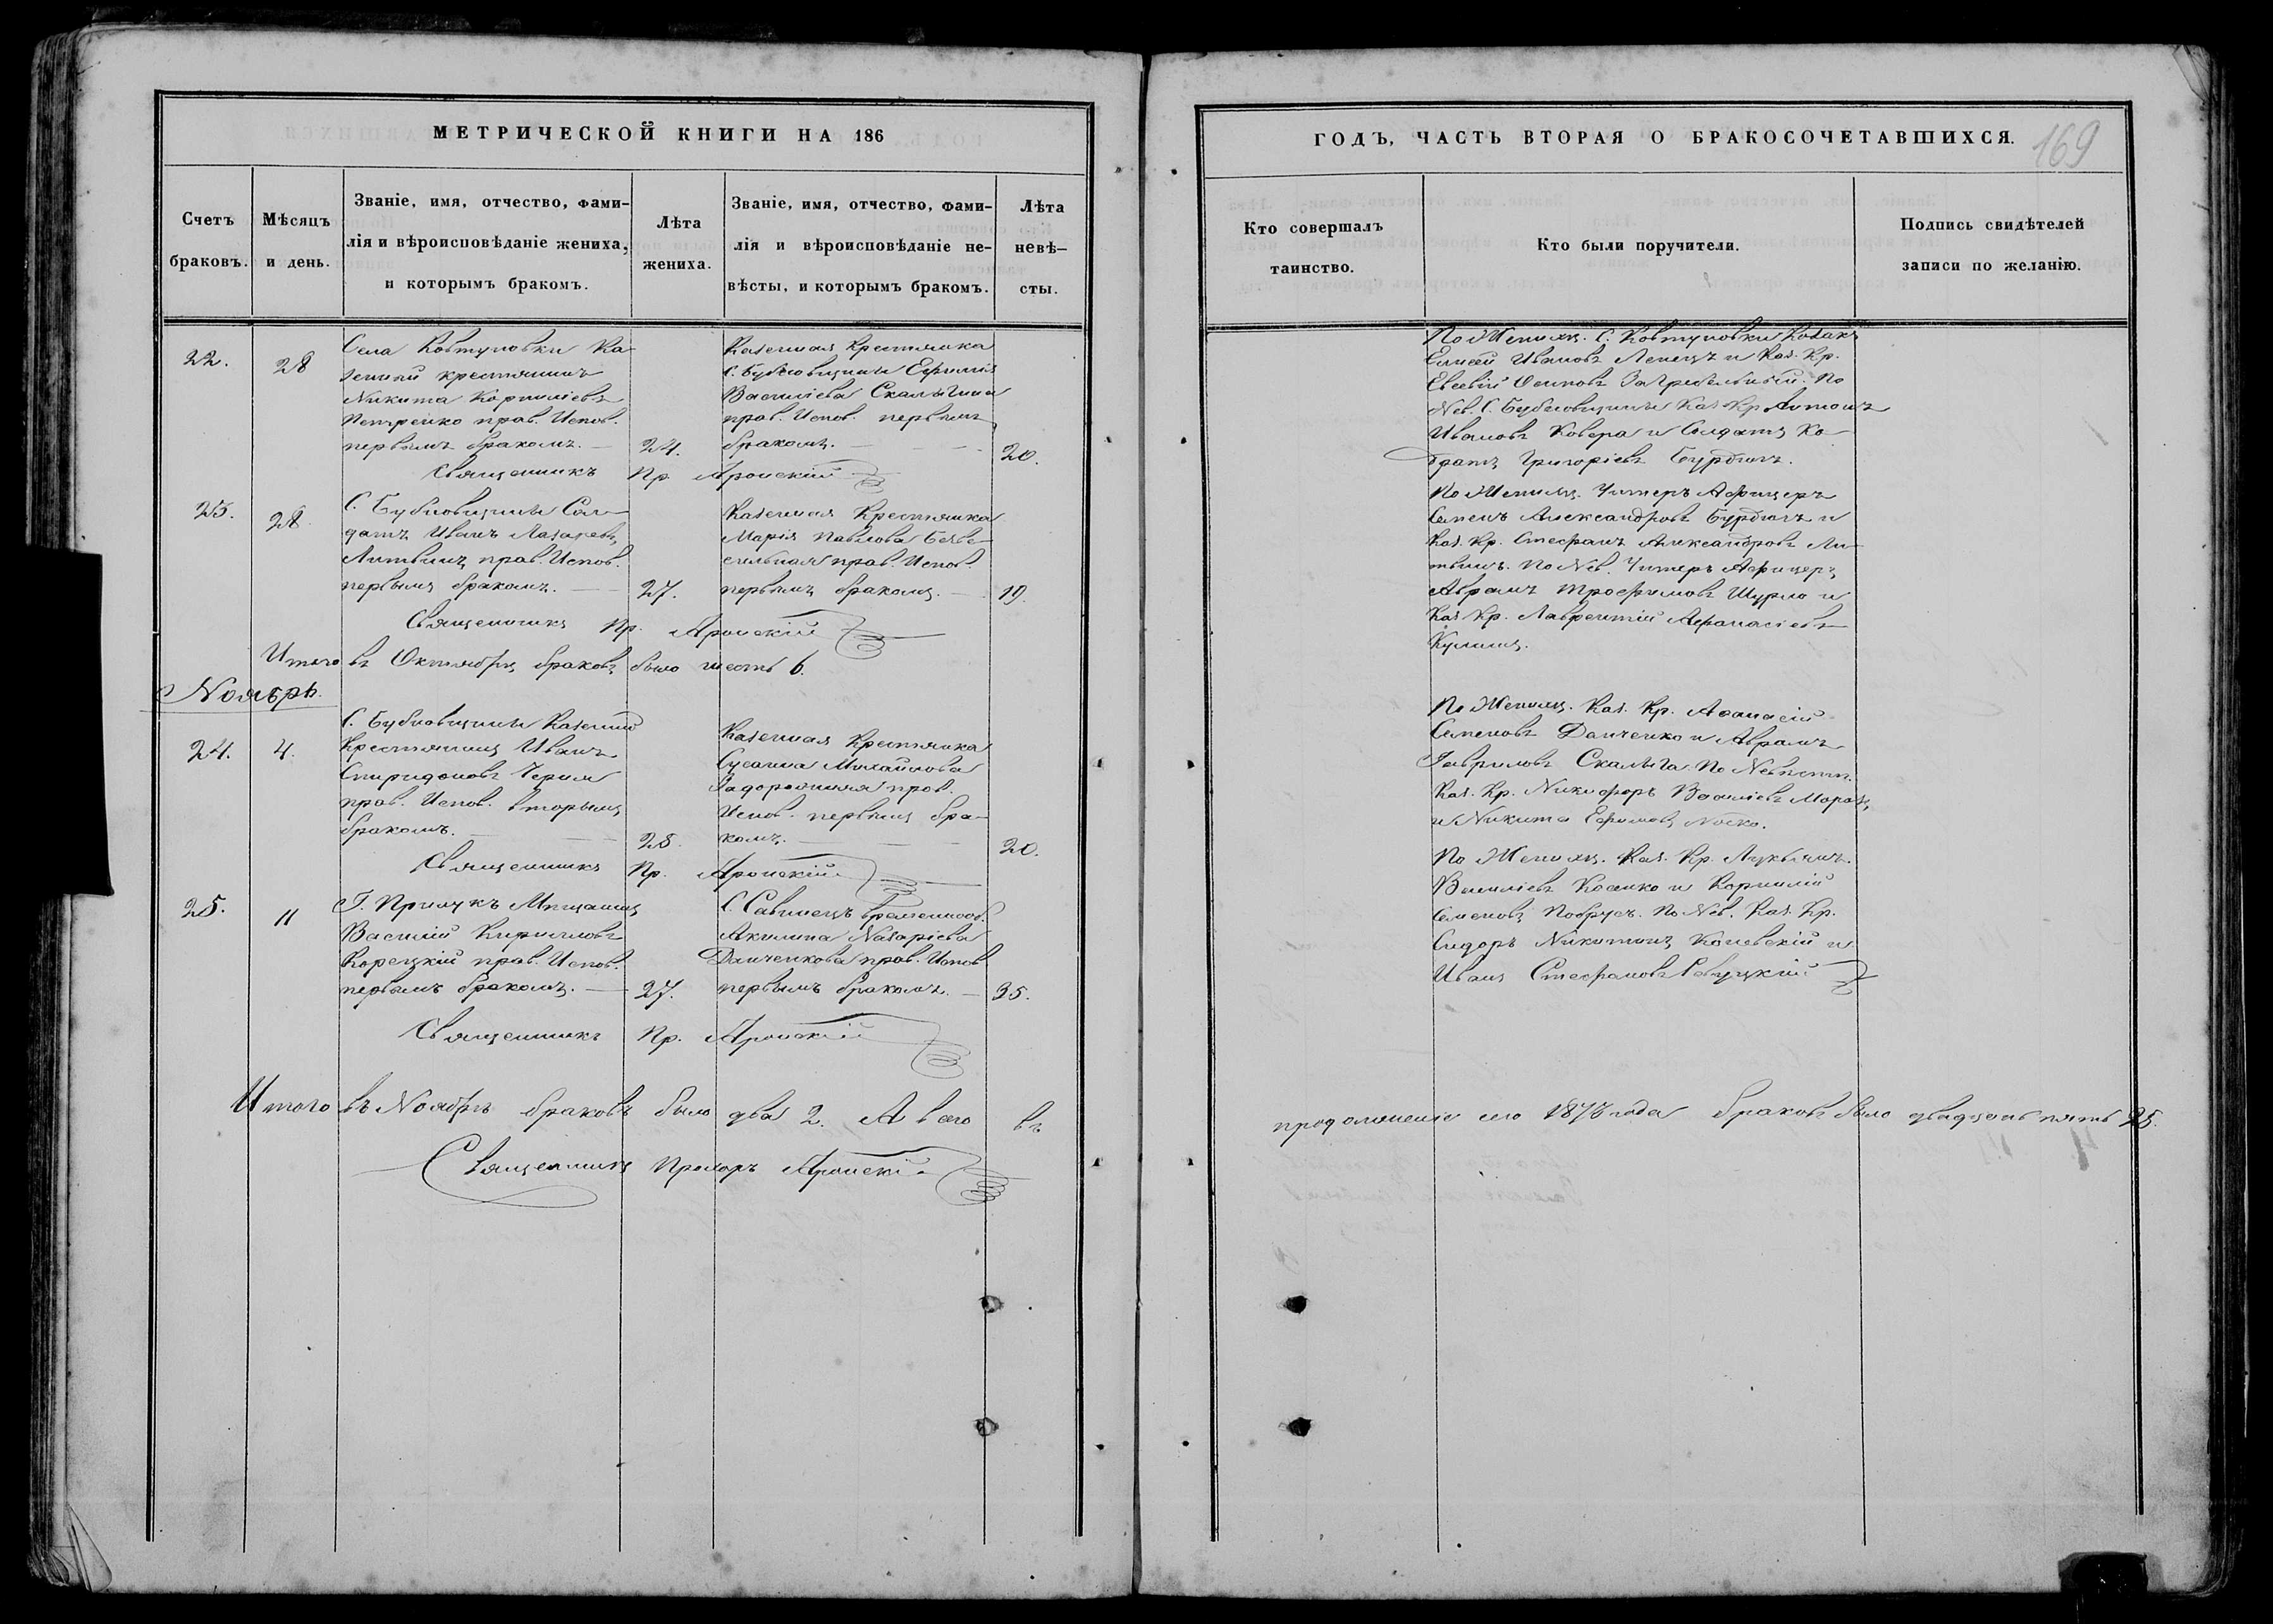 МЕТРИЧЕСКОЙ КНИГИ НА 186
Счетъ браковъ.
Мѣсяцъ и день.
Званіе, имя, отчество, фами-
лія и вѣроисповѣданіе жениха,
и которымъ бракомъ.
Лѣта жениха.
Званіе, имя, отчество, фами-
лія и вѣроисповѣданіе не-
вѣсты, и которымъ бракомъ.
Лѣта невѣ-
сты.
22.
28
Села Ковтуновки Ка
зенный крестьянинъ
Никита Корниліевъ
Петренко прав. Испов.
первымъ бракомъ.
24.
Казенная Крестьянка
С. Бубновщины Ефимія
Василіева Скалыгина
прав. Испов. первымъ
бракомъ.
20.
Священникъ Пр. Яронскій
23.
28
С. Бубновщины Сол-
датъ Иванъ Лазаревъ
Литвинъ прав. Испов.
первымъ бракомъ.
27.
Казенная Крестьянка
Марія Павлова
прав. Испов.
первымъ бракомъ.
19.
Священникъ Пр. Яронскій
Итого въ Октябрѣ браковъ было шесть 6.
Ноябрь.
24.
4.
С. Бубновщины Казенный
Крестьянинъ Иванъ
Спиридоновъ
прав. Испов. вторымъ
бракомъ.
28.
Казенная Крестьянка
Сусанна Михайлова
Задорожняя прав.
Испов. первымъ бра-
комъ.
20.
Священникъ Пр. Яронскій
25.
11
Г. Прилукъ Мѣщанинъ
Василій Кирилловъ
Корецкій прав. Испов.
первымъ бракомъ.
27.
С. Савинецъ временнооб.
Акилина Назаріева
Данченкова прав. Испов.
первымъ бракомъ.
25.
Священникъ Пр. Яронскій
Итого въ Ноябрѣ браковъ было два 2. А всего въ
Священникъ Прохоръ Яронскій
ГОДЪ, ЧАСТЬ ВТОРАЯ О БРАКОСОЧЕТАВШИХСЯ.
169
Кто совершалъ
таинство.
Кто были поручители.
Подпись свидѣтелей
записи по желанію.
По Женихѣ. С. Ковтуновки Козакъ
Елисей Ивановъ и Каз. Кр.
Евсевій Осиповъ Загребельный. По
Нев. С. Бубновщины Каз. Кр. Антонъ
Ивановъ Ковера и Солдатъ Ко-
дратъ Григоріевъ Бурдюгъ.
По Женихѣ. Унтеръ Афицеръ
Семенъ Александровъ Бурдюгъ и
Каз. Кр. Стефанъ Александровъ Ли-
твинъ. По Нев. Унтеръ Афицеръ
Аврамъ Трофимовъ Шурло и
Каз. Кр. Лаврентій Афанасіевъ
Кулишъ.
По Женихѣ. Каз. Кр. Афанасій
Семеновъ Данченко и Аврамъ
Гавриловъ Скалыга. По Невѣстѣ.
Каз. Кр. Никифоръ Василіевъ Морозъ
и Никита Ефимовъ Носко.
По Женихѣ. Каз. Кр. Лукьянъ
Василіевъ Косенко и Корнилій
Семеновъ Побрусъ. По Нев. Каз. Кр.
Сидоръ Никитинъ Каневскій и
Иванъ Стефановъ Ревуцкій
продолженіе сего 1873 года браковъ было двадцать пять 25.